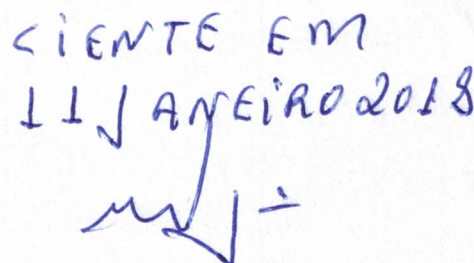 CIENTE EM
11 JANEIRO 2018